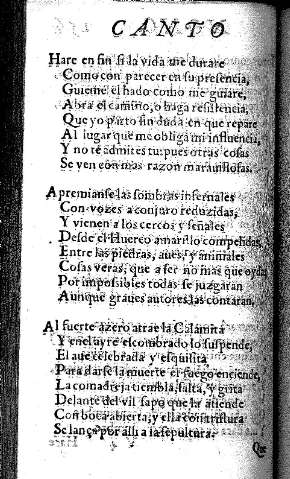 CANTO
Hare en fin si la vida me durare
Como con parecer en su presencia,
Guieme el hado como me guiare,
Abra el camino, o haga resistencia,
Que yo parto sin duda en que repare
Al lugar que me obliga mi influencia,
Y no te admires tu: pues otras cosas
Se ven con mas razon marauillosas.
Apremianse las sombras infernales
Con vozes a conjuro reduzidas,
Y vienen a los cercos y señales
Desde el Huerco amarillo compelidas,
Entre las piedras, aues, y animales
Cosas veras, que a ser no mas que oydas
Por impossibles todas se juzgaran
Aunque graues autores las contaran.
Al fuerte azero atrae la Calamita
Y en el ayre el combrado lo suspende,
El aue celebrada y esquisita
Para darse la muerte el fuego enciende,
La comadreja tiembla, salta, y grita
Delante del vil sapo que la atiende
Con boca abierta, y ella
Se lança por alli a la sepultura.
Que